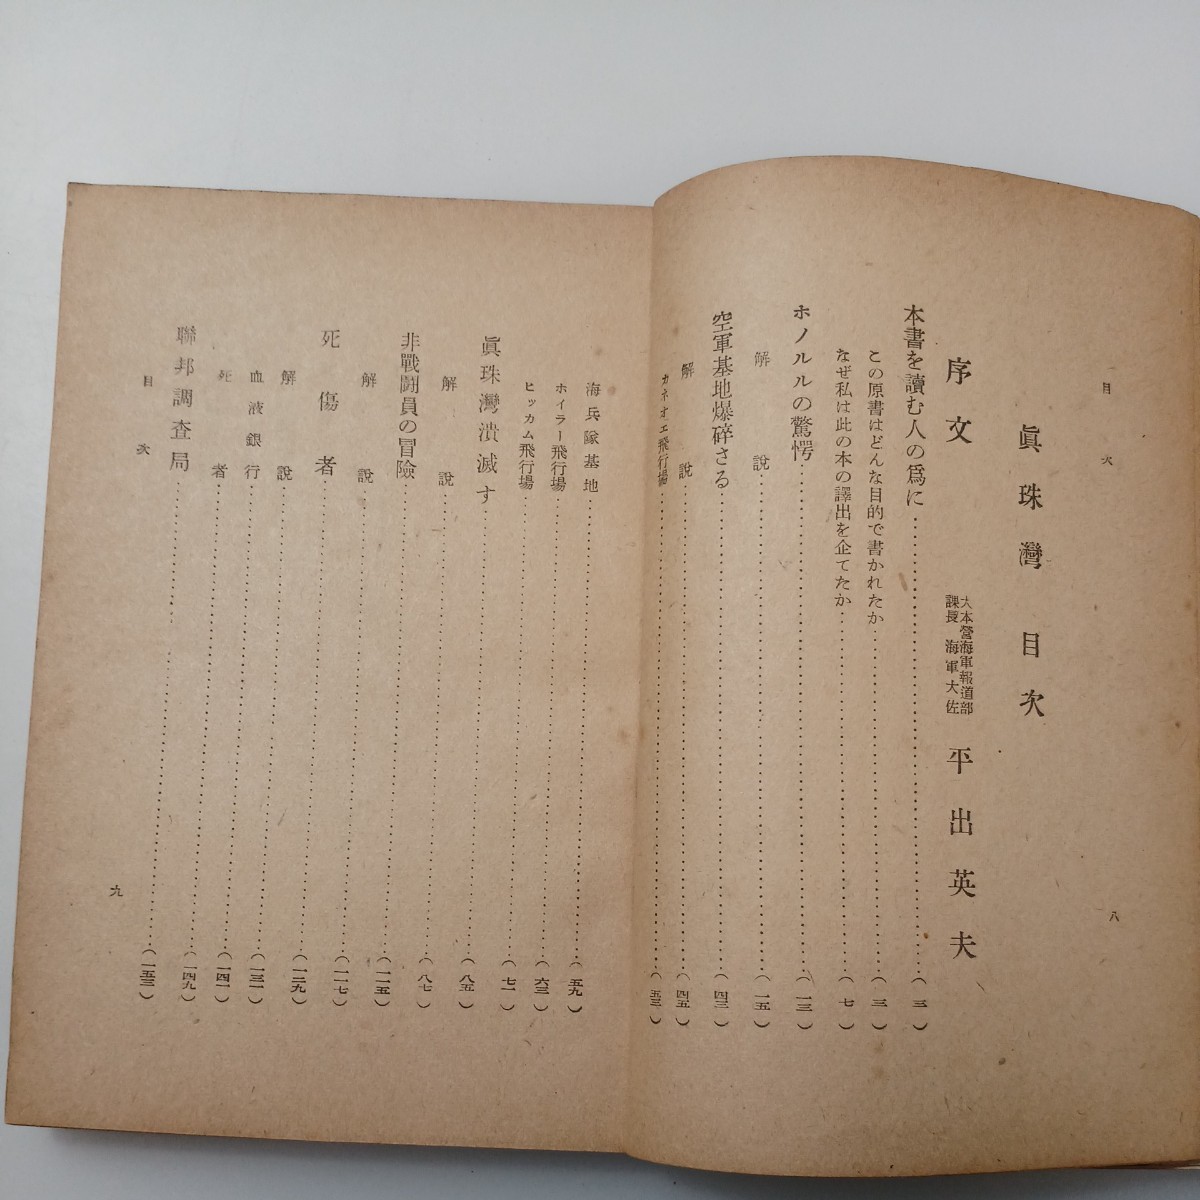 目次
八
眞珠灣 目次
序文 大本營海軍報道部
課長 海軍大佐 平出英夫
本書を讀む人の爲に……(三)
この原書はどんな目的で書かれたか……(三)
なぜ私は此の本の譯出を企てたか……(七)
ホノルルの驚愕……(一三)
解說……(一五)
空軍基地爆碎さる……(四三)
解說……(四五)
カネオエ飛行場……(五三)
海兵隊基地……(五九)
ホイラー飛行場……(六三)
ヒッカム飛行場……(七一)
眞珠灣潰滅す……(八五)
解說……(八七)
非戰鬪員の冒險……(一一五)
解說……(一一七)
死傷者……(一二九)
解說……(一三一)
血液銀行……(一四一)
死者……(一四九)
聯邦調査局……(一五三)
目次
九